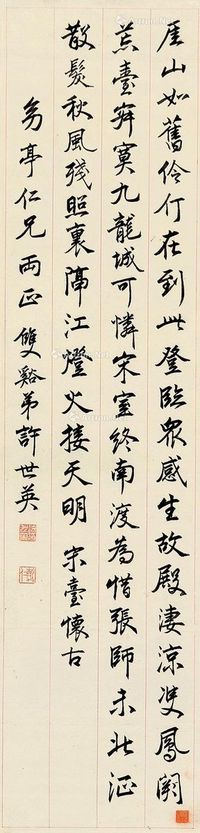 厓山如舊伶仃在到此登臨眾感生故殿淒涼雙鳳闕
荒臺寂寞九龍城可憐宋室終南渡為惜張師未北征
散髮秋風殘照裏隔江燈火接天明　宋臺懷古
亭仁兄兩正　雙谿弟許世英